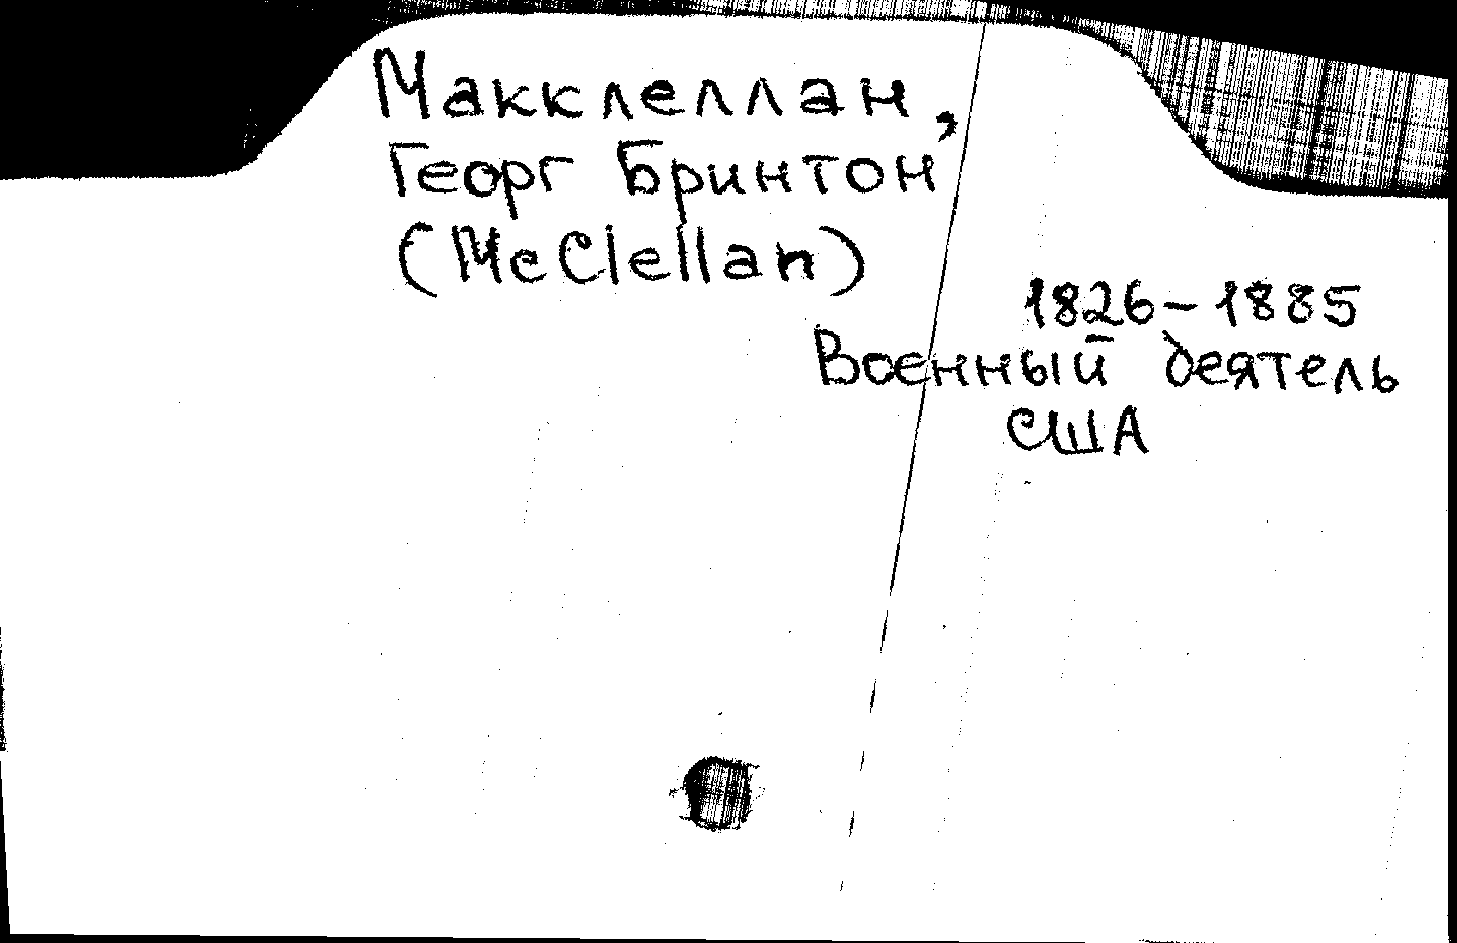 Макклеллан,
Георг Бринтон
(McClellan)
1826-1885
Военный деятель
США